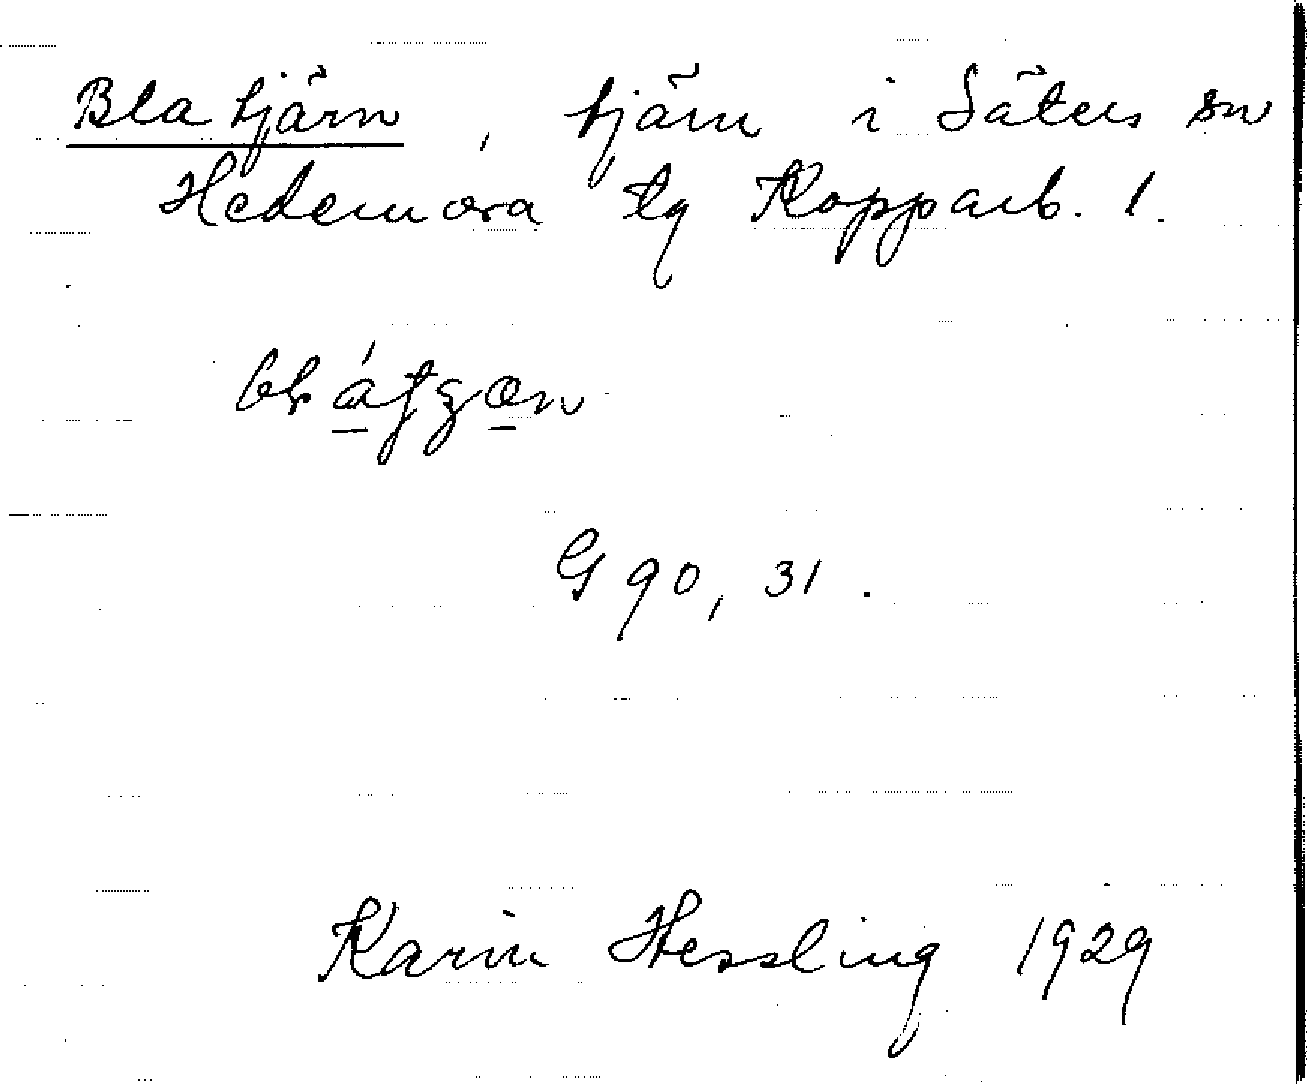 Blatjärn, tjärn i Säters sn
Hedemora tg Kopparb. l.
G 90, 31.
Karin Hessling 1929